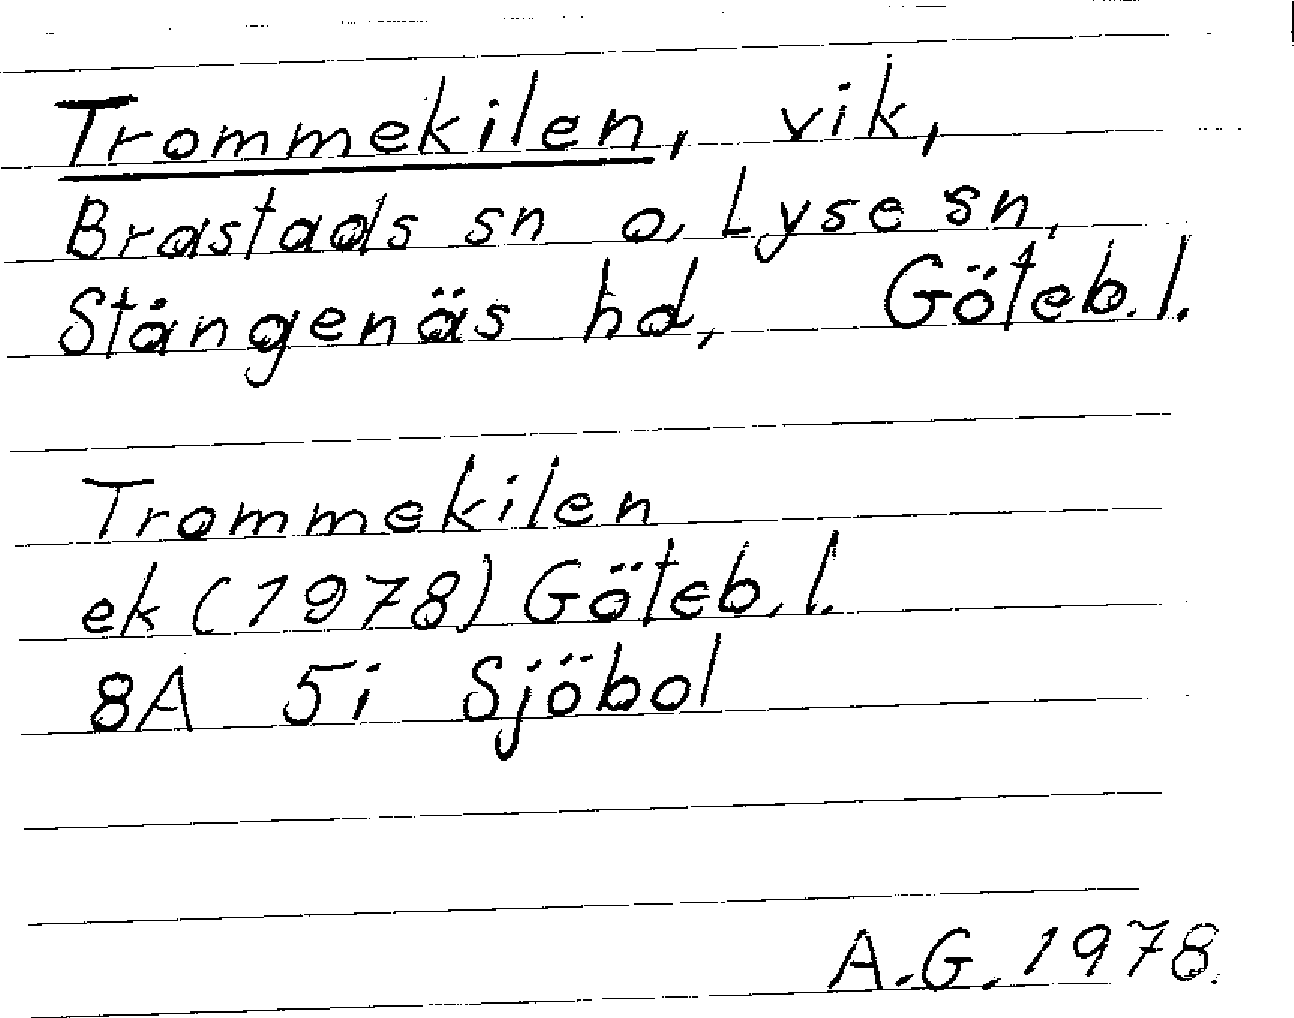 Trommekilen, vik,
Brastads sn o, Lyse sn,
Stångenäs hd, Göteb. l.
Trommekilen
ek (1978) Göteb. l.
8A 5i Sjöbol
A.G. 1978.